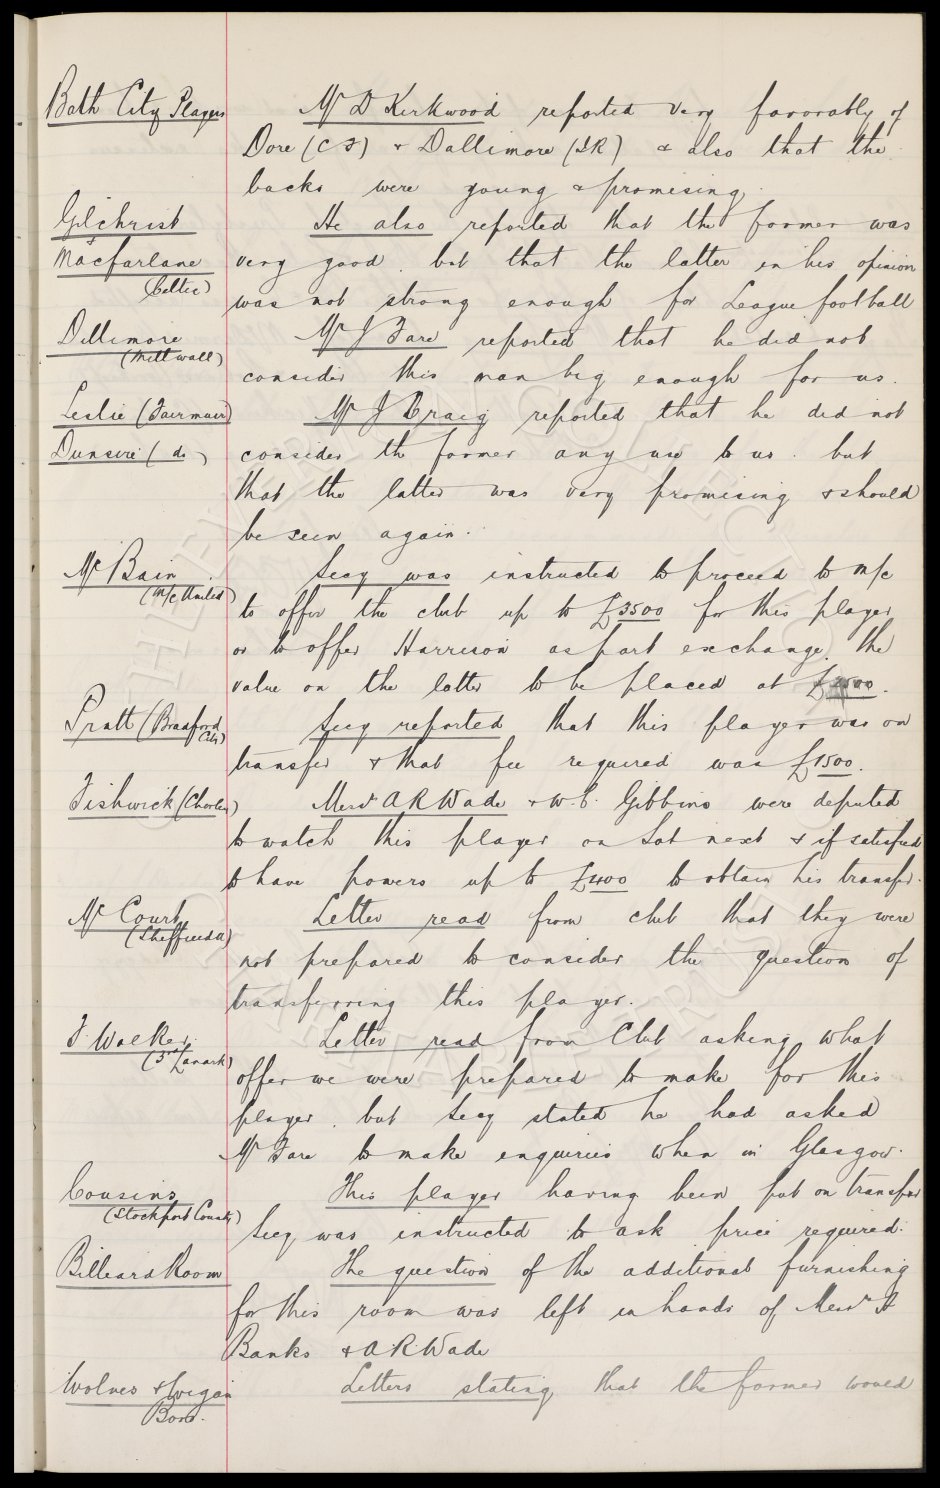 Bath City Players
Mr D Kirkwood reported very favorably of
Dore (C F) & Dallimore (I R) & also that the
backs were young & promising.
Gilchrist
&
Macfarlane
(Celtic)
He also reported that the former was
very good, but that the latter in his opinion
was not strong enough for League football
Dillimore
(Millwall)
Mr J Fare reported that he did not
consider this man big enough for us.
Leslie (Fairmuir)
Dunsire ( do )
Mr J Craig reported that he did not
consider the former any use to us. but
that the latter was very promising & should
be seen again.
McBain
(M/c United)
Secy was instructed to proceed to M/c
to offer the club up to £3500 for this player
or to offer Harrison as part exchange, the
value on the latter to be placed at
Pratt (Bradford
City)
Secy reported that this player was on
transfer & that fee required was £1500.
Fishwick (Chorley)
Messrs A R Wade & W. C. Gibbins were deputed
to watch this player on Sat next & if satisfied
to have powers up to £400 to obtain his transfer.
McCourt
(Sheffield U)
Letter read from club that they were
not prepared to consider the question of
transferring this player.
F. Walker
(3rd Lanark)
Letter read from Club asking what
offer we were prepared to make for this
player, but Secy stated he had asked
Mr Fare to make enquiries when in Glasgow.
Cousins
(Stockport County)
This player having been put on transfer
Secy was instructed to ask price required.
Billiard Room
The question of the additional furnishing
for this room was left in hands of Messrs A
Banks & A R Wade
Wolves & Wigan
Boro.
Letters stating that the former would